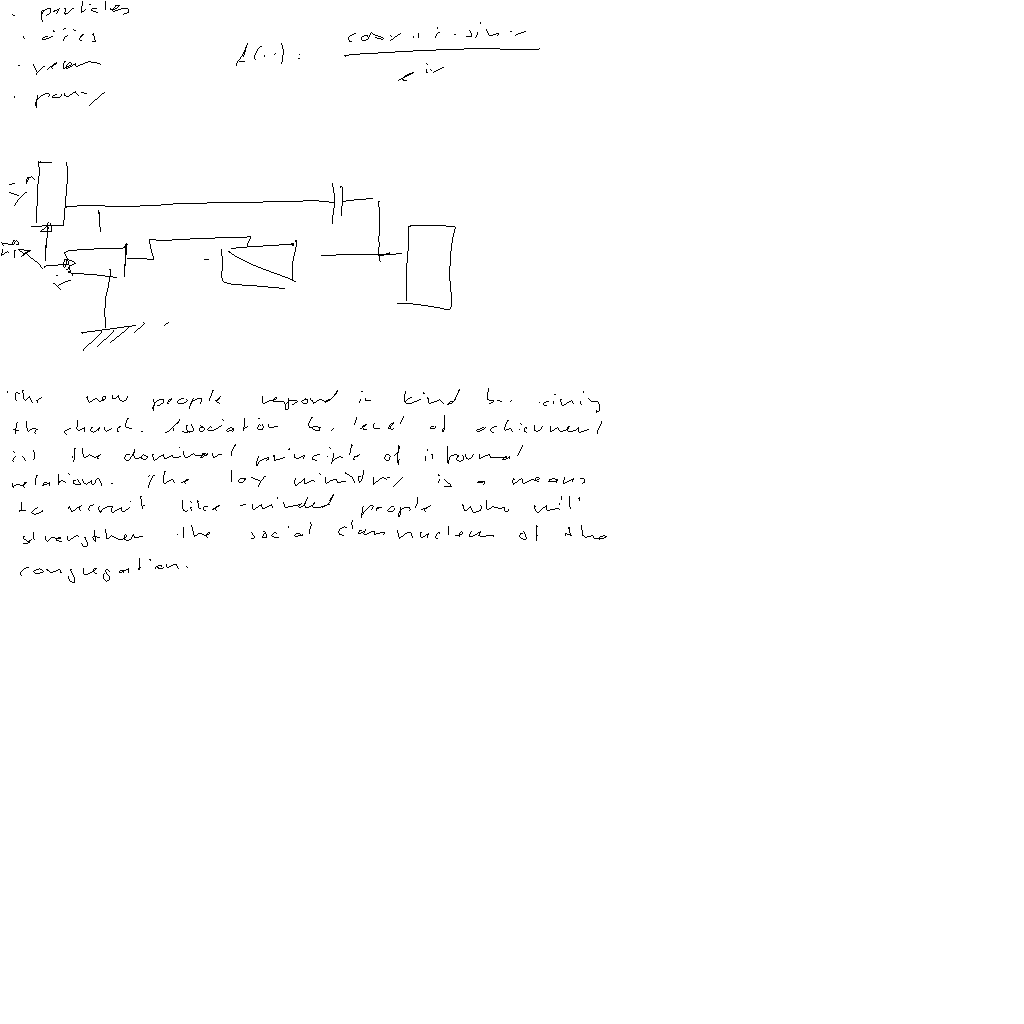 · particles
· cities
·
· pony
The new people respond in kind by joining
the church. Association by level of achievement
is the dominant principle of informal
relations. The lay ministry is a means
to recruit like-minded people who will
strengthen the social class nucleus of the
congregation.